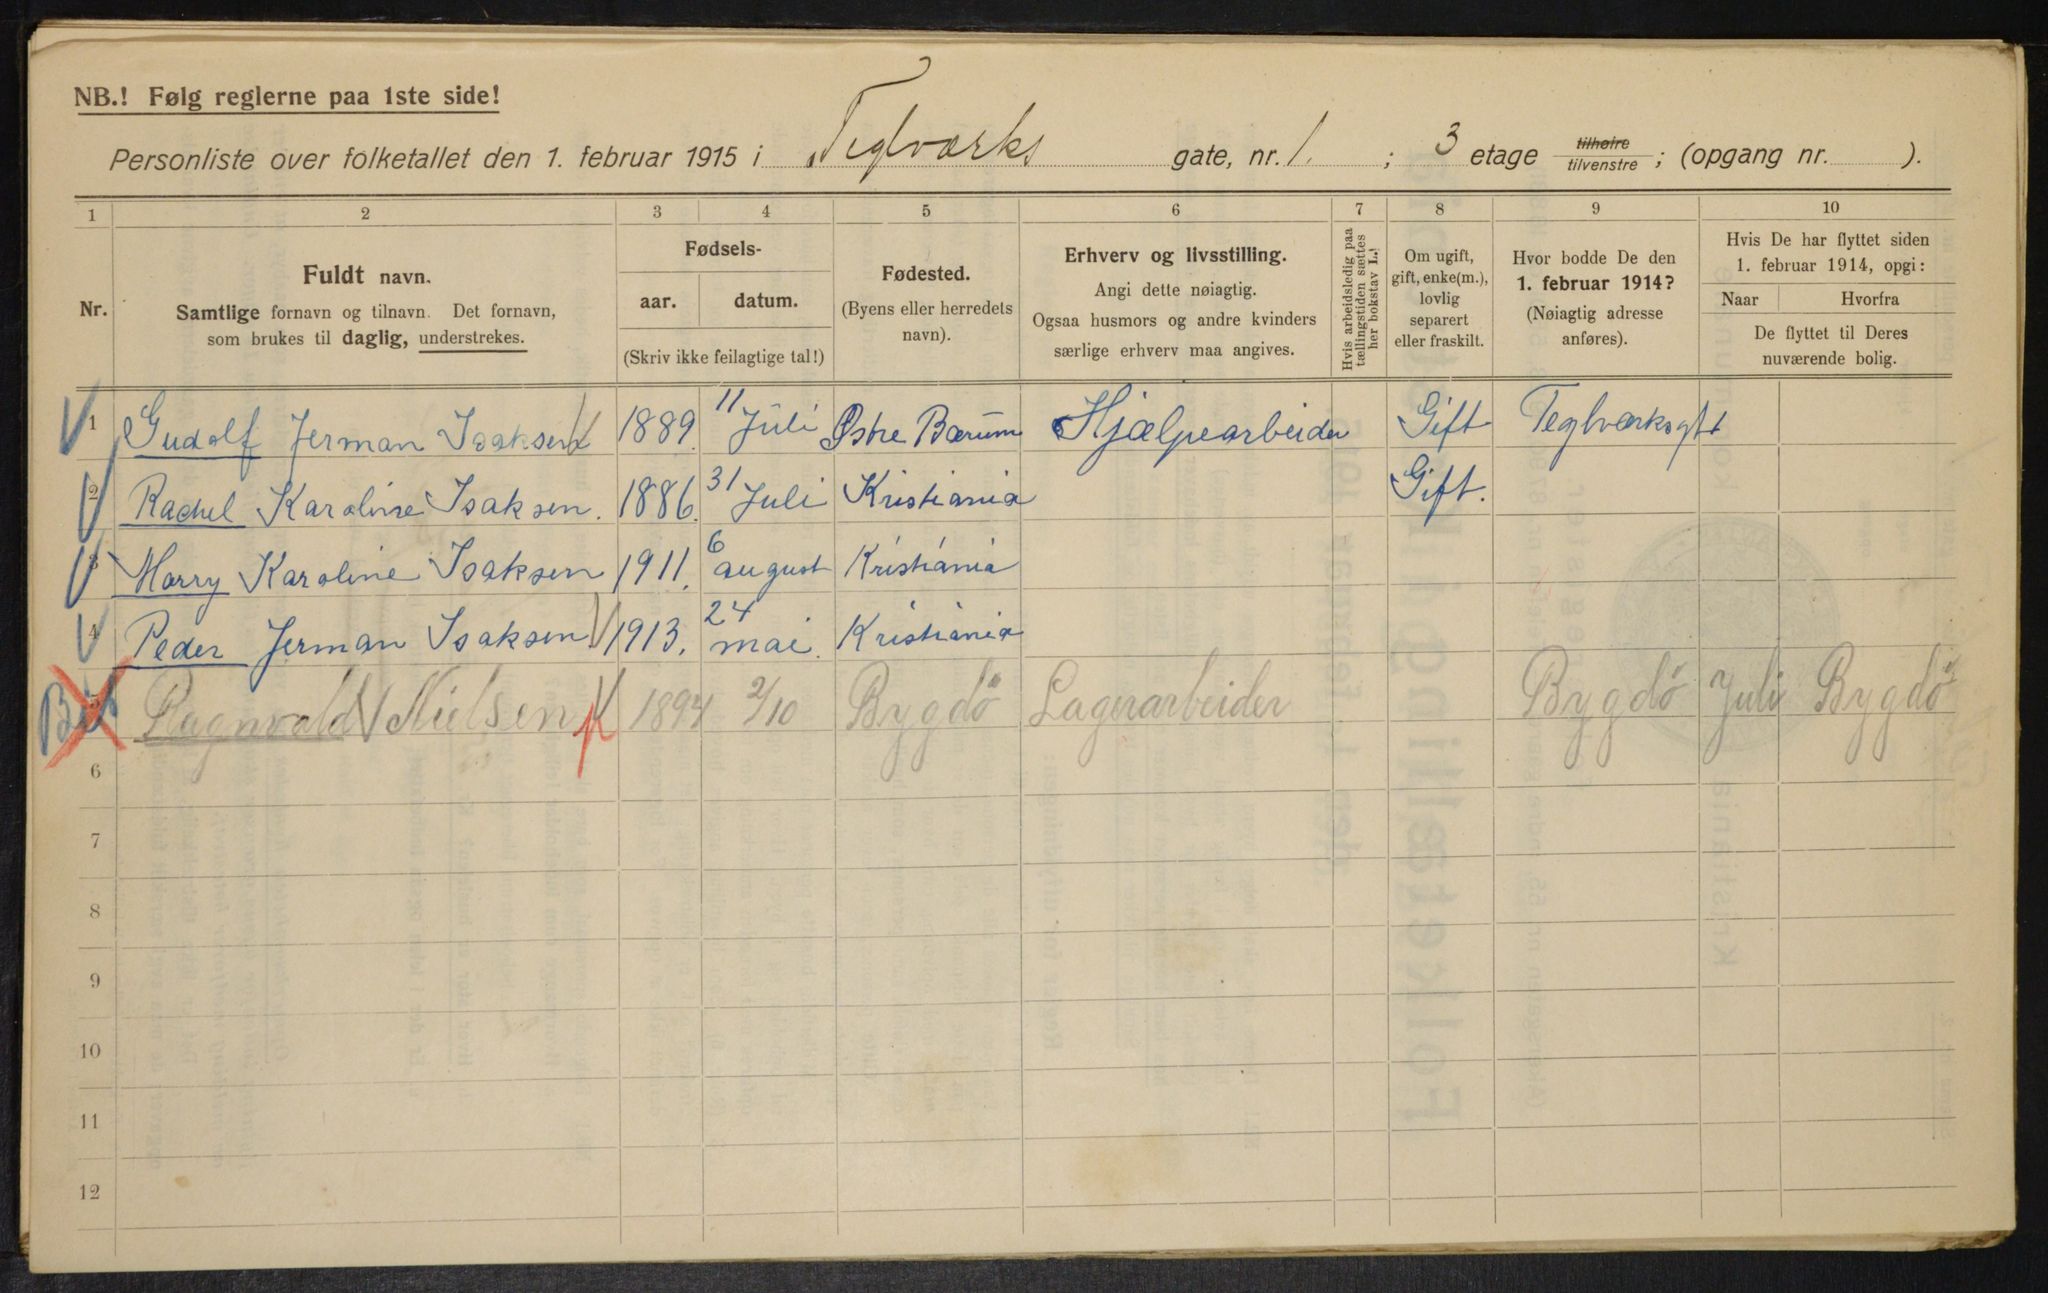 NB.! Følg reglerne paa 1ste side!
Personliste over folketallet den 1. februar 1915 i Teglværks gate, nr. 1. ; 3 etage tilhøire tilvenstre ; (opgang nr. ).
1 2 3 4 5 6 7 8 9 10
Nr.
Fuldt navn.
Samtlige fornavn og tilnavn. Det fornavn,
som brukes til daglig, understrekes.
Fødsels-
aar. datum.
(Skriv ikke feilagtige tal!)
Fødested.
(Byens eller herredets
navn).
Erhverv og livsstilling.
Angi dette nøiagtig.
Ogsaa husmors og andre kvinders
særlige erhverv maa angives.
Hvis arbeidsledig paa
tællingstiden sættes
her bokstav L.!
Om ugift,
gift, enke(m.),
lovlig
separert
eller fraskilt.
Hvor bodde De den
1. februar 1914?
(Nøiagtig adresse
anføres).
Hvis De har flyttet siden
1. februar 1914, opgi:
Naar Hvorfra
De flyttet til Deres
nuværende bolig.
1 Gudolf Jerman Isaksen 1889. 11 Juli Østre Bærum Hjælpearbeider Gift Teglværksgt 1
2 Rachel Karoline Isaksen. 1886. 31 Juli Kristiania Gift.
3 Harry Karoline Isaksen 1911. 6 august Kristiania
4 Peder Jerman Isaksen 1913. 24 mai. Kristiania
5 Ragnvald Nielsen 1894 2/10 Bygdö Lagerarbeider Bygdö Juli Bygdö
6
7
8
9
10
11
12